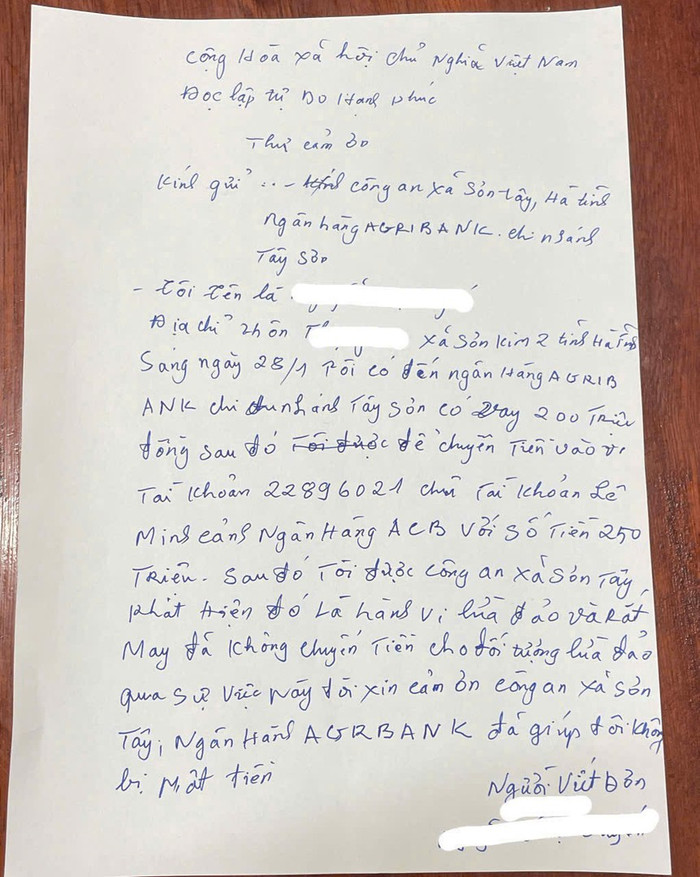 Cộng Hòa xã hội chủ Nghĩa Việt Nam
Độc lập tự Do Hạnh phúc
Thư cảm ơn
Kính gửi : - công an xã Sơn Tây, Hà tĩnh
Ngân hàng AGRIBANK. chi nhánh
Tây Sơn
- Tôi tên là
Địa chỉ thôn xã Sơn Kim 2 tỉnh Hà Tĩnh
Sáng ngày 28/1 Tôi có đến ngân Hàng AGRIB
ANK chi nhánh Tây Sơn có vay 200 Triệu
đồng sau đó Tôi được để chuyển Tiền vào
Tài khoản 22896021 chủ Tài Khoản Lê
Minh cảnh Ngân Hàng ACB Với Số Tiền 250
Triệu. Sau đó Tôi được công an xã Sơn Tây
phát Hiện đó Là hành vi lừa đảo và Rất
May đã Không chuyển Tiền cho đối tượng lừa đảo
qua sự việc này đôi xin cảm ơn công an xã Sơn
Tây, Ngân Hàng AGRBANK đã giúp đôi không
bị Mất tiền
Người Viết Đơn